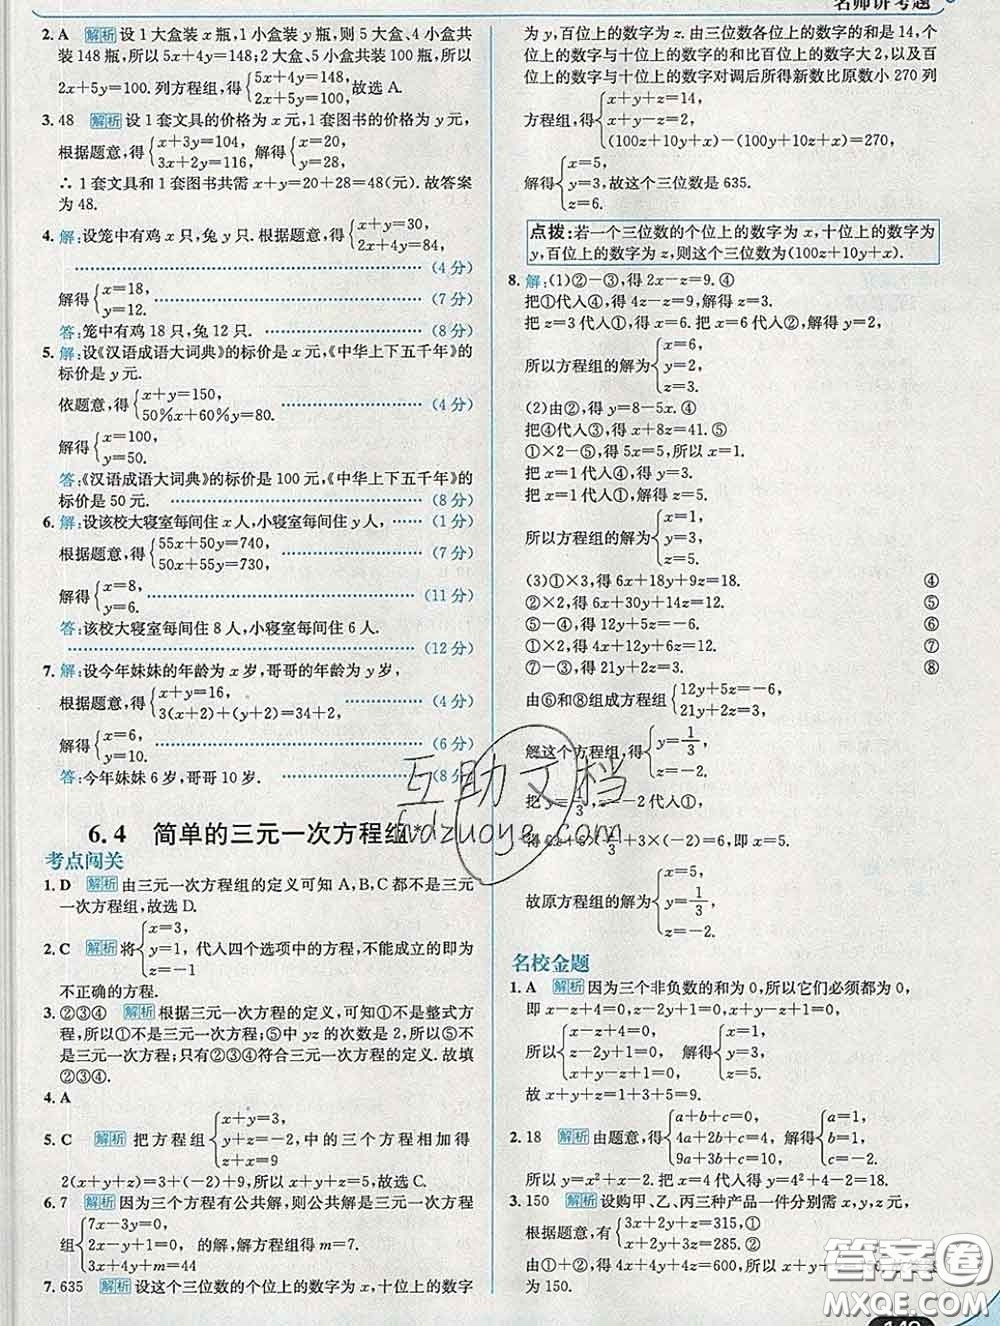 名师讲考题
2. A 解析 设 1 大盒装 x 瓶,1 小盒装 y 瓶,则 5 大盒、4 小盒共
装 148 瓶,所以 5x+4y=148;2 大盒、5 小盒共装 100 瓶,所以
2x+5y=100. 列方程组,得{5x+4y=148, 2x+5y=100. 故选 A.
3. 48 解析 设 1 套文具的价格为 x 元,1 套图书的价格为 y 元,
根据题意,得{x+3y=104, 3x+2y=116, 解得{x=20, y=28,
∴ 1 套文具和 1 套图书共需 x+y=20+28=48(元). 故答案
为 48.
4. 解:设笼中有鸡 x 只,兔 y 只. 根据题意,得{x+y=30, 2x+4y=84,
(4 分)
解得{x=18, y=12. (7 分)
答:笼中有鸡 18 只,兔 12 只. (8 分)
5. 解:设《汉语成语大词典》的标价是 x 元,《中华上下五千年》的
标价是 y 元.
依题意,得{x+y=150, 50%x+60%y=80. (4 分)
解得{x=100, y=50.
答:《汉语成语大词典》的标价是 100 元,《中华上下五千年》的
标价是 50 元. (8 分)
6. 解:设该校大寝室每间住 x 人,小寝室每间住 y 人, (1 分)
根据题意,得{55x+50y=740, 50x+55y=730, (7 分)
解得{x=8, y=6. (11 分)
答:该校大寝室每间住 8 人,小寝室每间住 6 人.
(12 分)
7. 解:设今年妹妹的年龄为 x 岁,哥哥的年龄为 y 岁,
根据题意,得{x+y=16, 3(x+2)+(y+2)=34+2, (4 分)
解得{x=6, y=10. (6 分)
答:今年妹妹 6 岁,哥哥 10 岁. (8 分)
6.4 简单的三元一次方程组*
考点闯关
1. D 解析 由三元一次方程组的定义可知 A,B,C 都不是三元
一次方程组,故选 D.
2. C 解析 将{x=3, y=1, z=-1 代入四个选项中的方程,不能成立的即为
不正确的方程.
3. ②③④ 解析 根据三元一次方程的定义,可知①不是整式方
程,所以①不是三元一次方程;⑤中 yz 的次数是 2,所以⑤不
是三元一次方程;只有②③④符合三元一次方程的定义. 故填
②③④.
4. A
5. C 解析 把方程组{x+y=3, y+z=-2, z+x=9 中的三个方程相加得
2(x+y+z)=3+(-2)+9,所以 x+y+z=5. 故选 C.
6. 7 解析 因为三个方程有公共解,则公共解是三元一次方程
组{7x-3y=0, 2x-y+1=0, 3x+4y+m=44 的解,解方程组得 m=7.
7. 635 解析 设这个三位数的个位上的数字为 x,十位上的数字
为 y,百位上的数字为 z. 由三位数各位上的数字的和是 14,个
位上的数字与十位上的数字的和比百位上的数字大 2,以及百
位上的数字与十位上的数字对调后所得新数比原数小 270 列
方程组,得{x+y+z=14, x+y-z=2, (100z+10y+x)-(100y+10z+x)=270,
解得{x=5, y=3, z=6. 故这个三位数是 635.
点拨:若一个三位数的个位上的数字为 x,十位上的数字为
y,百位上的数字为 z,则这个三位数为(100z+10y+x).
8. 解:(1)②-③,得 2x-z=9. ④
把①代入④,得 4z-z=9,解得 z=3.
把 z=3 代入①,得 x=6. 把 x=6 代入②,解得 y=2,
所以方程组的解为{x=6, y=2, z=3.
(2)由②,得 y=8-5x. ④
把④代入③,得 x+8z=41. ⑤
①×2-⑤,得 5x=5,所以 x=1.
把 x=1 代入④,得 y=3.
把 x=1 代入①,解得 z=5.
所以方程组的解为{x=1, y=3, z=5.
(3)①×3,得 6x+18y+9z=18. ④
②×2,得 6x+30y+14z=12. ⑤
⑤-④,得 12y+5z=-6. ⑥
①×2,得 4x+12y+6z=12. ⑦
⑦-③,得 21y+2z=3. ⑧
由⑥和⑧组成方程组{12y+5z=-6, 21y+2z=3.
解这个方程组,得{y=1/3, z=-2.
故原方程组的解为{x=5, y=1/3, z=-2.
名校金题
1. A 解析 因为三个非负数的和为 0,所以它们必须都为 0,
所以{x-z+4=0, z-2y+1=0, x+y-z+1=0, 解得{x=1, y=3, z=5.
故 x+y+z=1+3+5=9.
2. 18 解析 由题意,得{a+b+c=0, 4a+2b+c=4, 9a+3b+c=10, 解得{a=1, b=1, c=-2.
所以 y=x²+x-2. 把 x=4 代入,得 y=4²+4-2=18.
3. 150 解析 设购甲、乙、丙三种产品一件分别需 x,y,z 元,
根据题意,有{3x+2y+z=315,① x+2y+3z=285,②
由①+②,得 4x+4y+4z=600,所以 x+y+z=
为 150.
互助文档
hdzuoye.com
答案圈
MXQE.COM